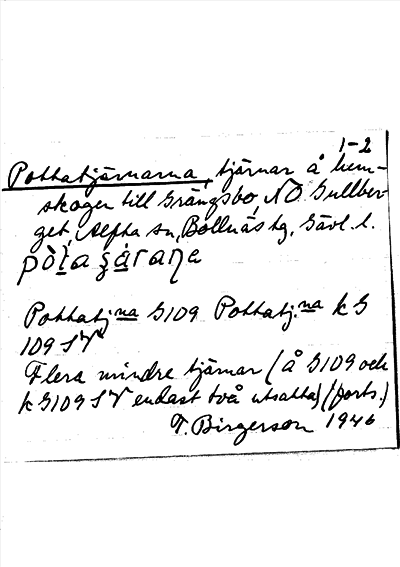 1-2
Pottatjärnarna, tjärnar å hem-
skogen till Grängsbo, NO Gullber-
get, Alfta sn, Bollnäs tg, Gävl. l.
pòt̲a ʂa̲raɳa
Pottatj:na G109 Pottatj:na k G
109 SV
Flera mindre tjärnar (å G109 och
k G109 SV endast två utsatta) (forts.)
T. Birgerson 1946